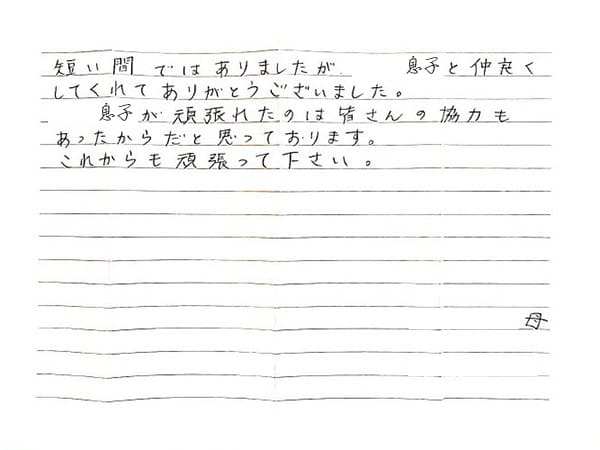 短い間ではありましたが、 息子と仲良く
してくれてありがとうございました。
息子が頑張れたのは皆さんの協力も
あったからだと思っております。
これからも頑張って下さい。
母